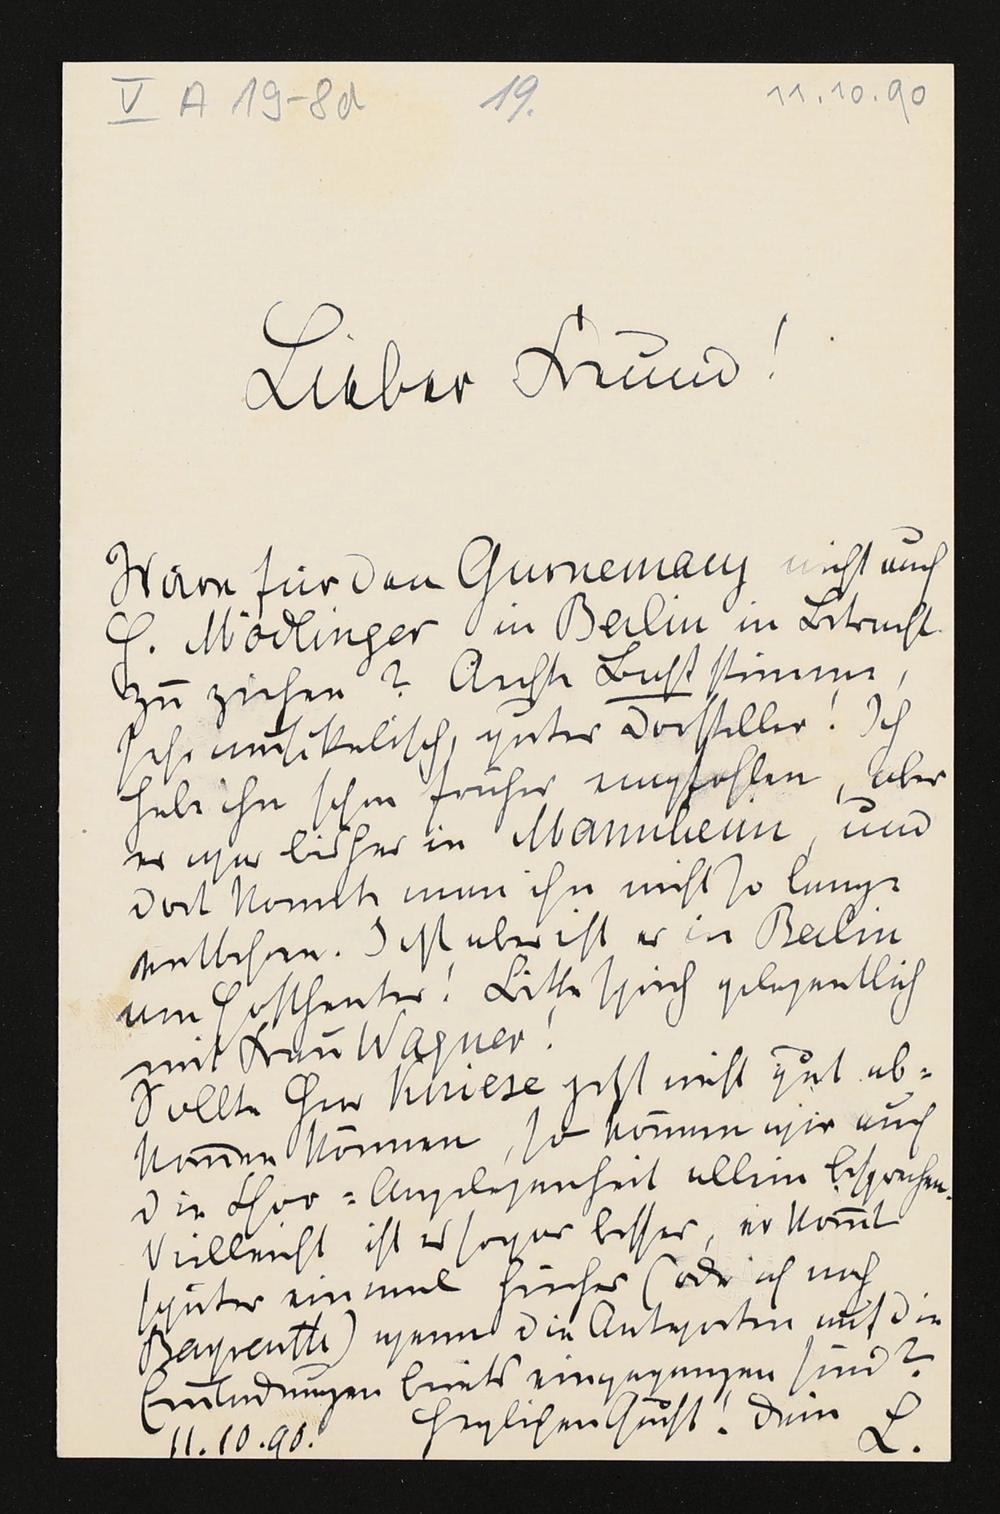 V A 19-8d 19. 11.10.90
Lieber Freund!
Wäre für den Gurnemanz nicht auch
H. Mödlinger in Berlin in Betracht
zu ziehen? Aechte Bassstimme,
sehr musikalisch, guter Darsteller! Ich
habe ihn schon früher empfohlen, aber
er war bisher in Mannheim, und
dort konnte man ihn nicht so lange
entbehren. Jetzt aber ist er in Berlin
am Hoftheater! Bitte sprich gelegentlich
mit Frau Wagner!
Sollte Herr Kniese jetzt nicht gut ab=
kom̅en können, so kön̅en wir auch
die Chor=Angelegenheit allein besprechen.
Vielleicht ist es sogar besser, er kom̅t
später einmal hierher (oder ich nach
Bayreuth) wenn die Antworten auf die
Einladungen bereits eingegangen sind?
Herzlichen Gruß! Dein L.
11.10.90.